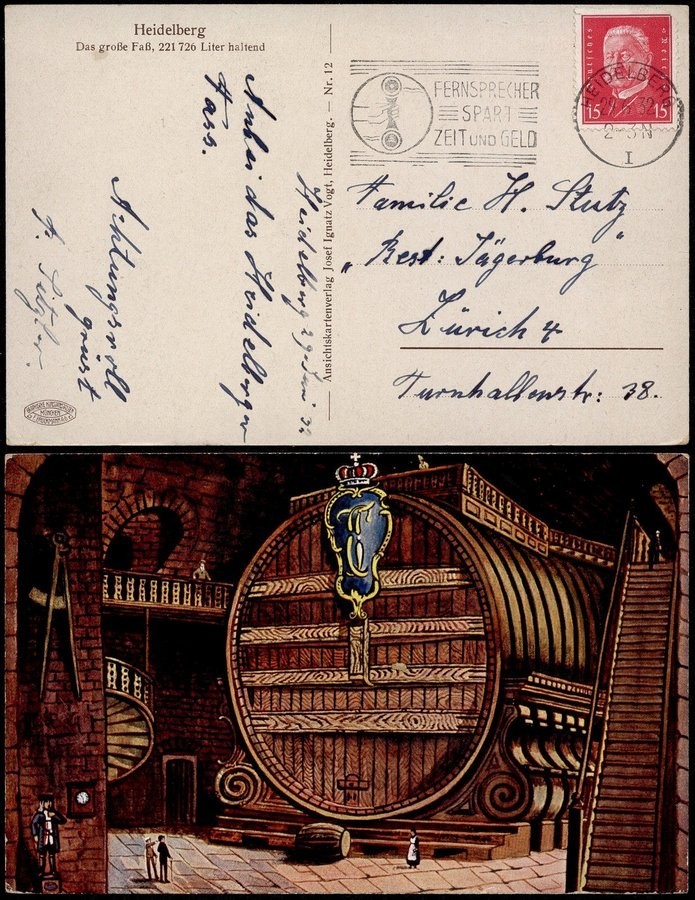 Heidelberg
Das große Faß, 221 726 Liter haltend
Ansichtskartenverlag Josef Ignatz Vogt, Heidelberg. — Nr. 12
FERNSPRECHER
SPART
ZEIT UND GELD
HEIDELBERG
2-3N
I
15 15
Heidelberg 29. Juni 32
Anbei das Heidelberger
Fass.
Achtungsvoll
grüsst
Familie H. Stutz
„Rest: Jägerburg"
Zürich 4
Turnhallenstr: 38.